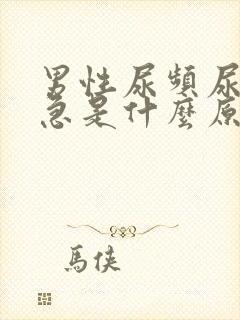 男性尿頻尿
急是什麼原
馬俠